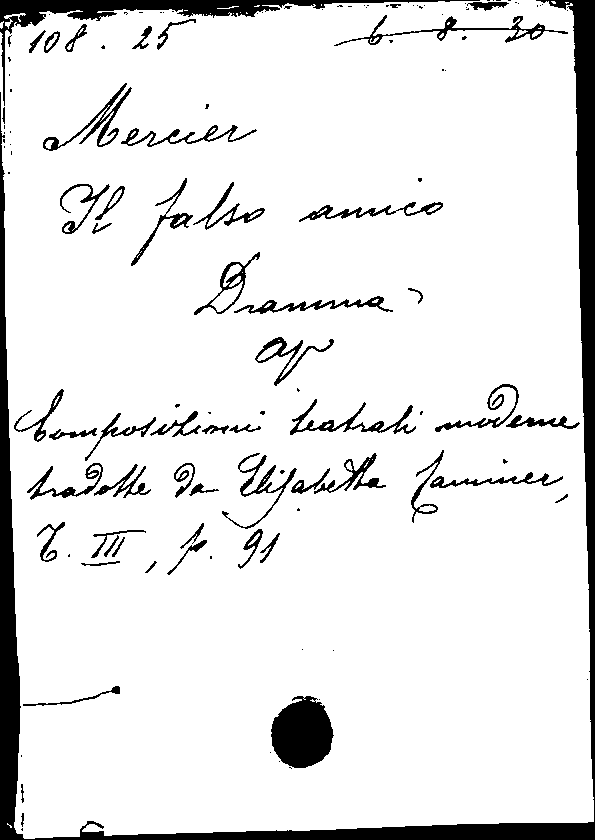 108. 25 6. 8. 30
Mercier
Il falso amico
Dramma
ap
Composizioni teatrali moderne
tradotte da Elisabetta Caminer,
T. III, p. 91